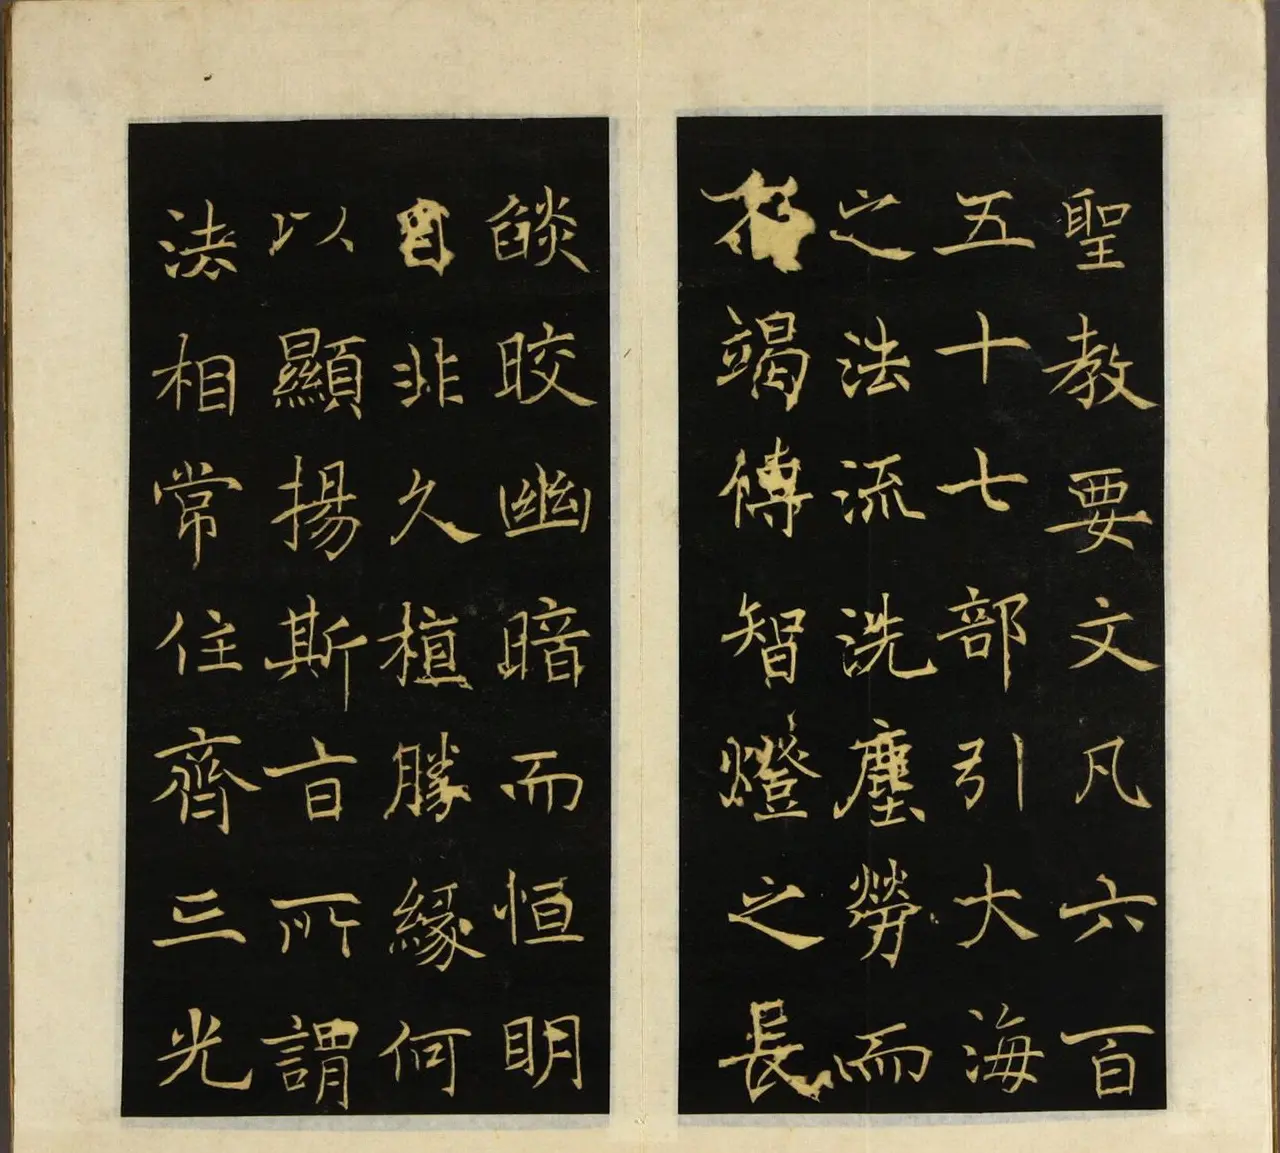 聖教要文凡六百
五十七部引大海
之法流洗塵勞而
不竭傳智燈之長
燄皎幽暗而恒明
自非久植勝緣何
以顯揚斯旨所謂
法相常住齊三光